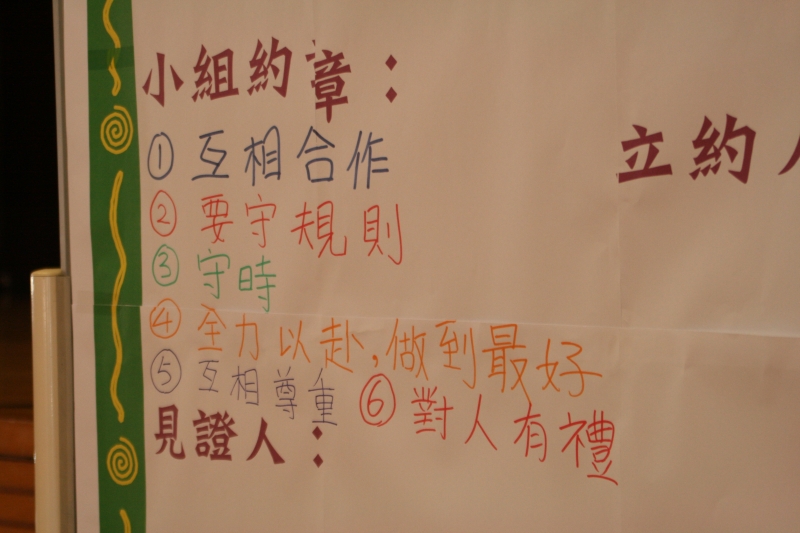 小組約章：
立約人
①互相合作
②要守規則
③守時
④全力以赴,做到最好
⑤互相尊重 ⑥對人有禮
見證人：